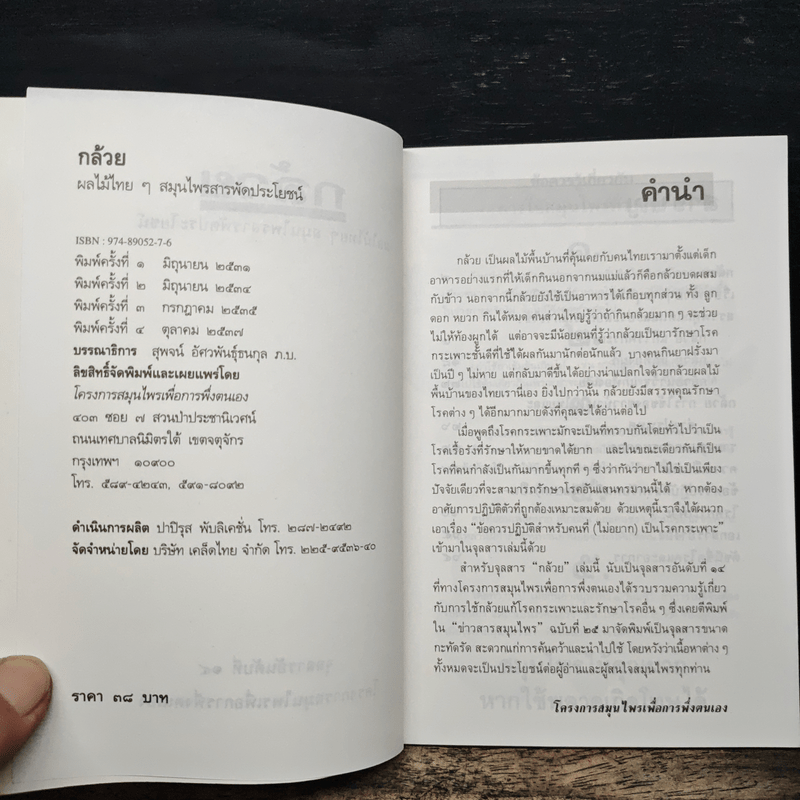 กล้วย
ผลไม้ไทย ๆ สมุนไพรสารพัดประโยชน์
ISBN : 974-89052-7-6
พิมพ์ครั้งที่ ๑ มิถุนายน ๒๕๓๑
พิมพ์ครั้งที่ ๒ มิถุนายน ๒๕๓๔
พิมพ์ครั้งที่ ๓ กรกฎาคม ๒๕๓๕
พิมพ์ครั้งที่ ๔ ตุลาคม ๒๕๓๗
บรรณาธิการ สุพจน์ อัศวพันธุ์ธนกุล ภ.บ.
ลิขสิทธิ์จัดพิมพ์และเผยแพร่โดย
โครงการสมุนไพรเพื่อการพึ่งตนเอง
๔๐๓ ซอย ๗ สวนป่าประชานิเวศน์
ถนนเทศบาลนิมิตรใต้ เขตจตุจักร
กรุงเทพฯ ๑๐๙๐๐
โทร. ๕๘๙-๔๒๔๓, ๕๙๑-๘๐๙๒
ดำเนินการผลิต ปาปิรุส พับลิเคชั่น โทร. ๒๘๗-๒๔๙๒
จัดจำหน่ายโดย บริษัท เคล็ดไทย จำกัด โทร. ๒๒๕-๙๕๓๖-๔๐
ราคา ๓๘ บาท
คำนำ
กล้วย เป็นผลไม้พื้นบ้านที่คุ้นเคยกับคนไทยเรามาตั้งแต่เด็ก
อาหารอย่างแรกที่ให้เด็กกินนอกจากนมแม่แล้วก็คือกล้วยบดผสม
กับข้าว นอกจากนี้กล้วยยังใช้เป็นอาหารได้เกือบทุกส่วน ทั้ง ลูก
ดอก หยวก กินได้หมด คนส่วนใหญ่รู้ว่าถ้ากินกล้วยมาก ๆ จะช่วย
ไม่ให้ท้องผูกได้ แต่อาจจะมีน้อยคนที่รู้ว่ากล้วยเป็นยารักษาโรค
กระเพาะชั้นดีที่ใช้ได้ผลกันมานักต่อนักแล้ว บางคนกินยาฝรั่งมา
เป็นปี ๆ ไม่หาย แต่กลับมาดีขึ้นได้อย่างน่าแปลกใจด้วยกล้วยผลไม้
พื้นบ้านของไทยเรานี่เอง ยิ่งไปกว่านั้น กล้วยยังมีสรรพคุณรักษา
โรคต่าง ๆ ได้อีกมากมายดังที่คุณจะได้อ่านต่อไป
เมื่อพูดถึงโรคกระเพาะมักจะเป็นที่ทราบกันโดยทั่วไปว่าเป็น
โรคเรื้อรังที่รักษาให้หายขาดได้ยาก และในขณะเดียวกันก็เป็น
โรคที่คนกำลังเป็นกันมากขึ้นทุกที ๆ ซึ่งว่ากันว่ายาไม่ใช่เป็นเพียง
ปัจจัยเดียวที่จะสามารถรักษาโรคอันแสนทรมานนี้ได้ หากต้อง
อาศัยการปฏิบัติตัวที่ถูกต้องเหมาะสมด้วย ด้วยเหตุนี้เราจึงได้ผนวก
เอาเรื่อง “ข้อควรปฏิบัติสำหรับคนที่ (ไม่อยาก) เป็นโรคกระเพาะ”
เข้ามาในจุลสารเล่มนี้ด้วย
สำหรับจุลสาร “กล้วย” เล่มนี้ นับเป็นจุลสารอันดับที่ ๑๔
ที่ทางโครงการสมุนไพรเพื่อการพึ่งตนเองได้รวบรวมความรู้เกี่ยว
กับการใช้กล้วยแก้โรคกระเพาะและรักษาโรคอื่น ๆ ซึ่งเคยตีพิมพ์
ใน “ข่าวสารสมุนไพร” ฉบับที่ ๒๕ มาจัดพิมพ์เป็นจุลสารขนาด
กะทัดรัด สะดวกแก่การค้นคว้าและนำไปใช้ โดยหวังว่าเนื้อหาต่าง ๆ
ทั้งหมดจะเป็นประโยชน์ต่อผู้อ่านและผู้สนใจสมุนไพรทุกท่าน
โครงการสมุนไพรเพื่อการพึ่งตนเอง